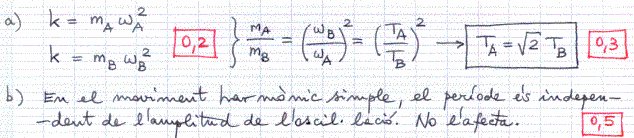 a) k = m_A ω_A² 0,2 } m_A/m_B = (ω_B/ω_A)² = (T_A/T_B)² → T_A = √2 T_B 0,3
k = m_B ω_B²
b) En el moviment harmònic simple, el període és indepen-
-dent de l'amplitud de l'oscil·lació. No l'afecta. 0,5